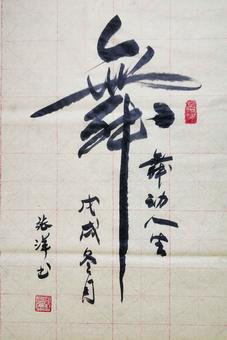 舞
舞动人生
戊戌冬月
张洋书